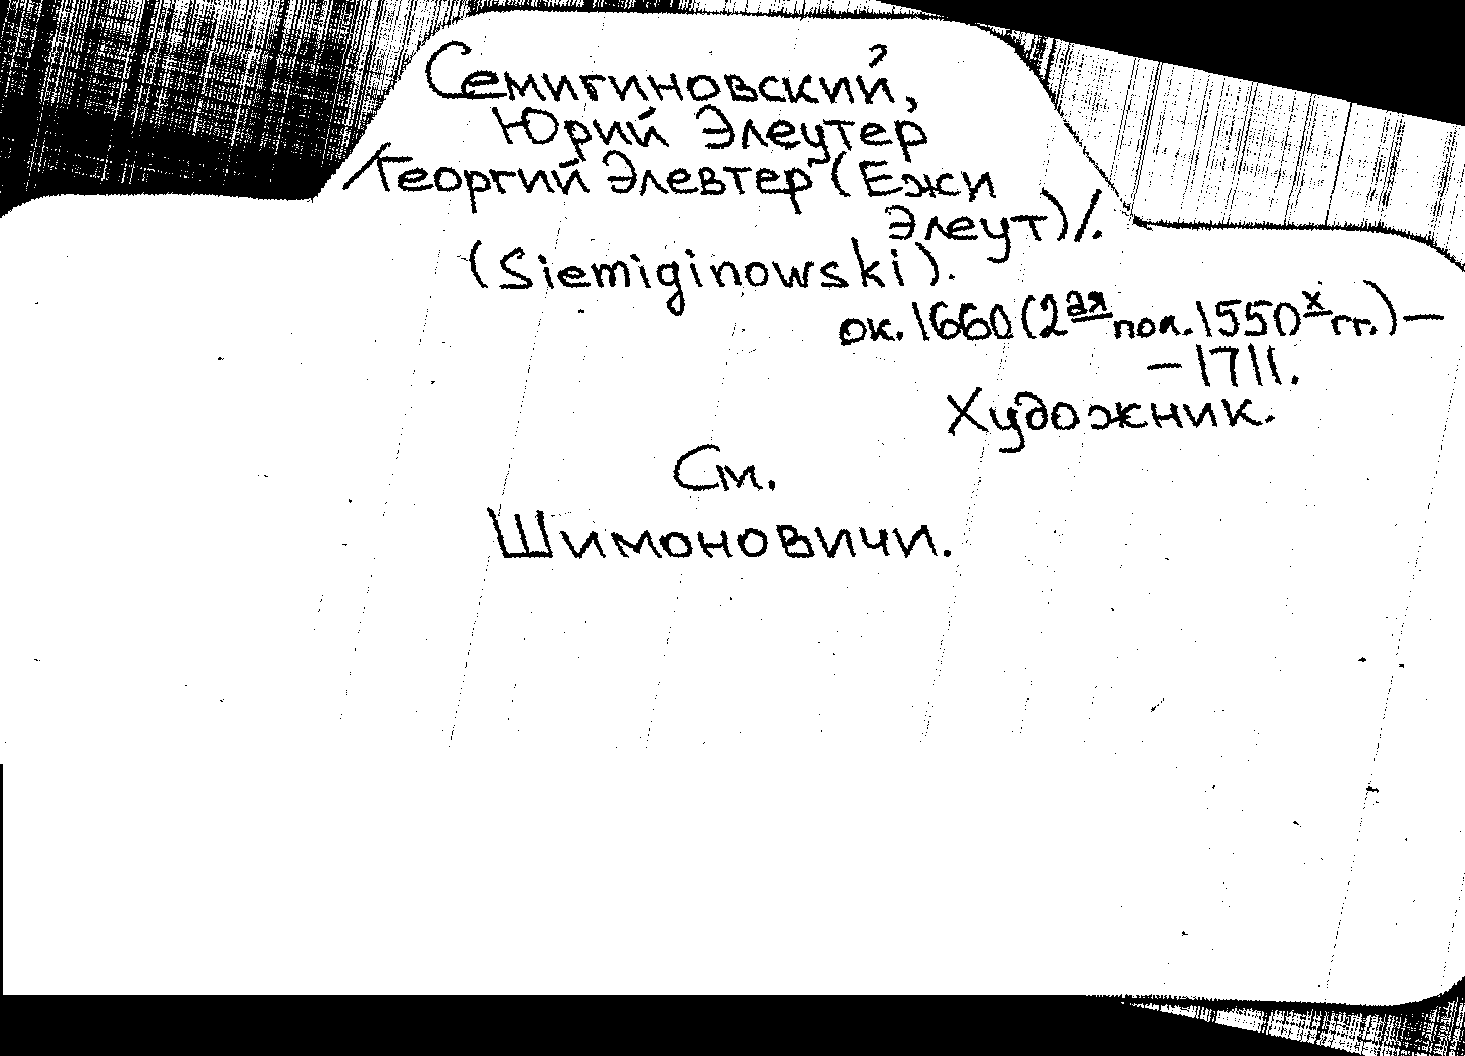 Семигиновский,
Юрий Элеутер
/Георгий Элевтер (Ежи
Элеут)/.
(Siemiginowski).
ок. 1660 (2ая пол. 1550х гг.) —
— 1711.
Художник.
См.
Шимоновичи.